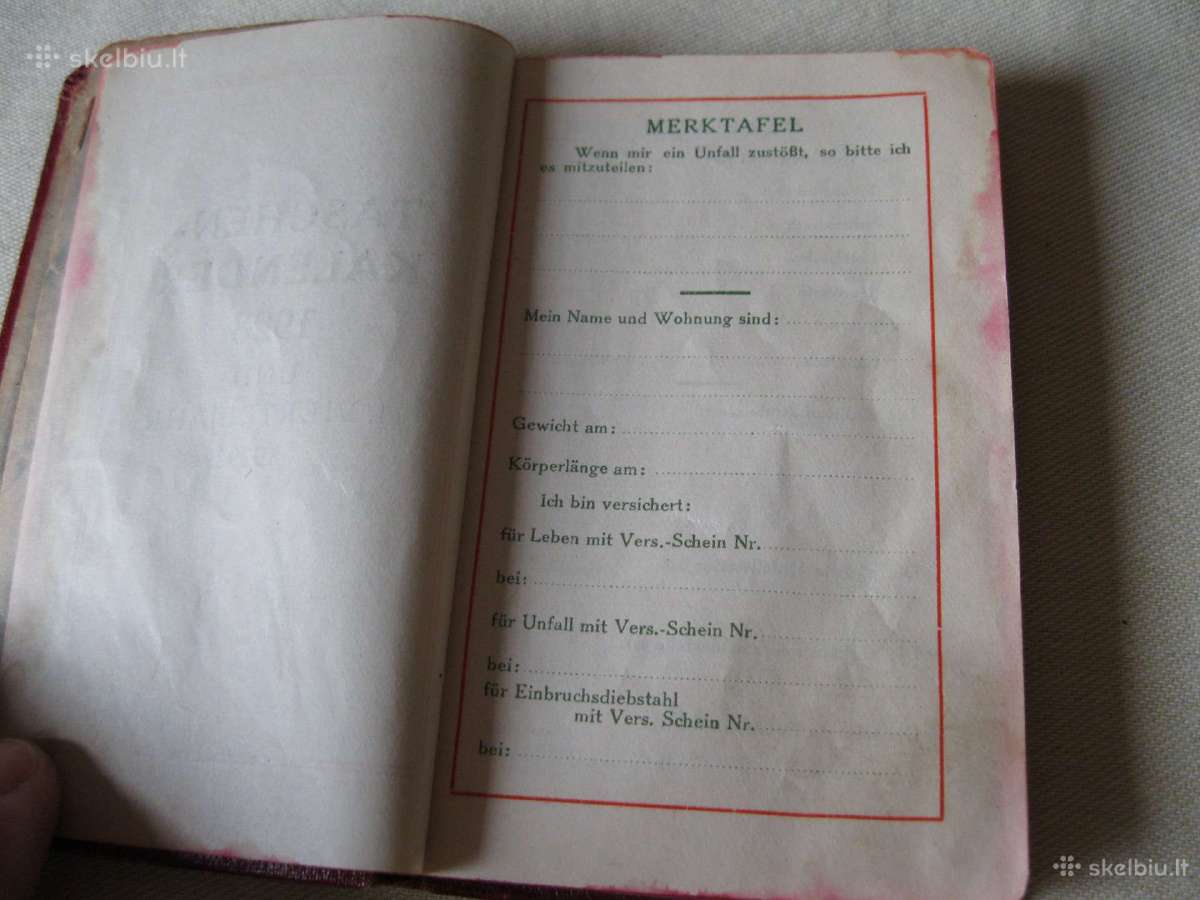 skelbiu.lt
TASCHEN-
KALENDER
UND
MERKTAFEL
Wenn mir ein Unfall zustößt, so bitte ich
es mitzuteilen:
Mein Name und Wohnung sind:
Gewicht am:
Körperlänge am:
Ich bin versichert:
für Leben mit Vers.-Schein Nr.
bei:
für Unfall mit Vers.-Schein Nr.
bei:
für Einbruchsdiebstahl
mit Vers. Schein Nr.
bei:
skelbiu.lt